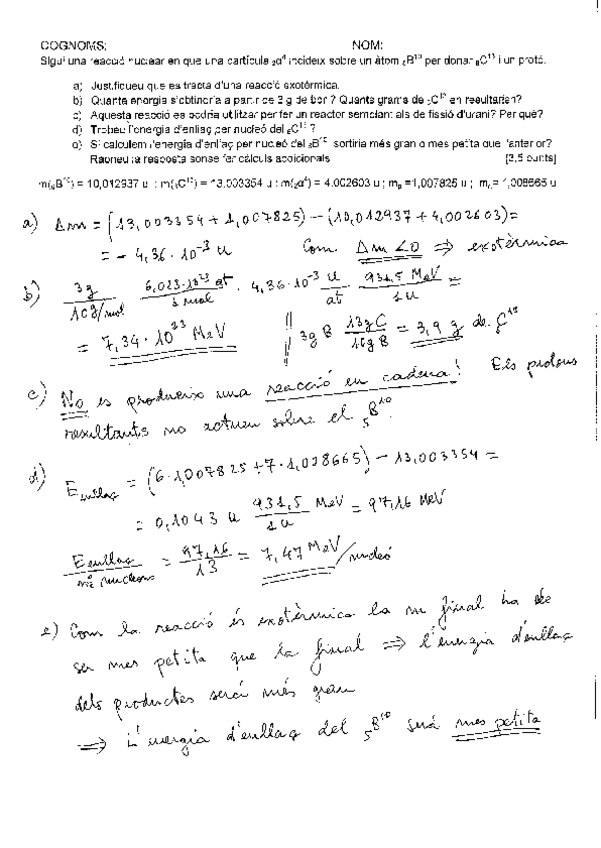 COGNOMS: NOM:
Sigui una reacció nuclear en que una partícula ₂α⁴ incideix sobre un àtom ₅B¹⁰ per donar ₆C¹³ i un protó.
a) Justifiqueu que es tracta d'una reacció exotèrmica.
b) Quanta energia s'obtindria a partir de 3 g de bor ? Quants grams de ₆C¹³ en resultarien?
c) Aquesta reacció es podria utilitzar per fer un reactor semblant als de fissió d'urani? Per què?
d) Trobeu l'energia d'enllaç per nucleó del ₆C¹³ ?
e) Si calculem l'energia d'enllaç per nucleó del ₅B¹⁰ sortiria més gran o mes petita que l'anterior?
Raoneu la resposta sense fer càlculs addicionals. [3,5 punts]
m(₅B¹⁰) = 10,012937 u ; m(₆C¹³) = 13,003354 u ; m(₂α⁴) = 4,002603 u ; mₚ =1,007825 u ; mₙ= 1,008665 u
a) Δm = (13,003354 + 1,007825) − (10,012937 + 4,002603) =
= − 4,36 · 10⁻³ u Com Δm < 0 ⇒ exotèrmica
b) 3g / 10g/mol · 6,023·10²³ at / 1 mol · 4,36·10⁻³ u / at · 931,5 MeV / 1u =
= 7,34 · 10²³ MeV || 3g B 13g C / 10g B = 3,9 g de C¹³
c) No es produeix una reacció en cadena! Els protons
resultants no actuen sobre el ₅B¹⁰.
d) Eenllaç = (6·1,007825 + 7·1,008665) − 13,003354 =
= 0,1043 u 931,5 MeV / 1u = 97,16 MeV
Eenllaç / nº nucleons = 97,16 / 13 = 7,47 MeV/nucleó
e) Com la reacció és exotèrmica la m final ha de
ser mes petita que la final ⇒ l'energia d'enllaç
dels productes serà més gran
⇒ L'energia d'enllaç del ₅B¹⁰ serà mes petita